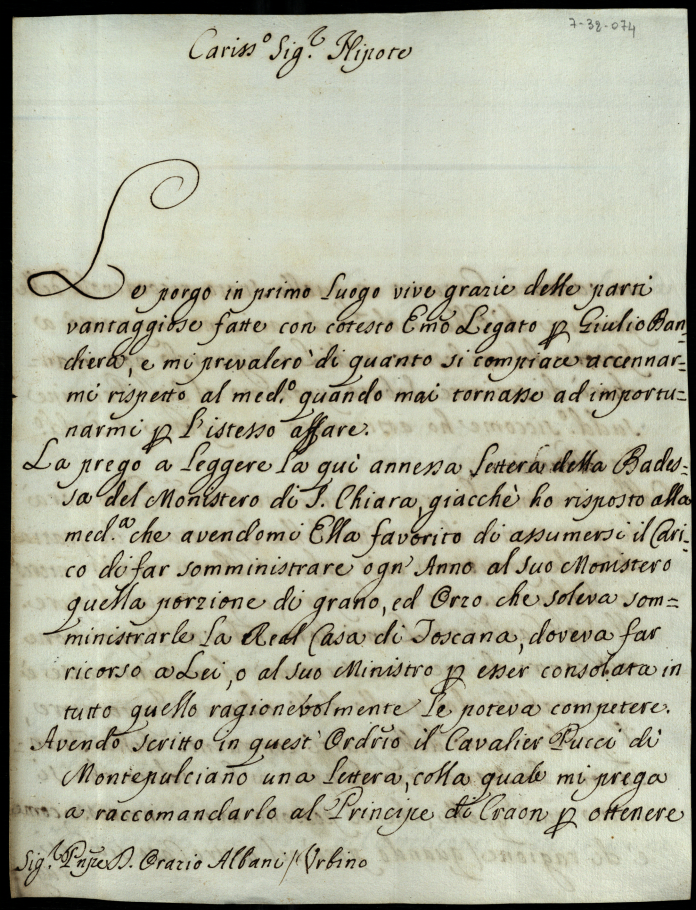 7-38-074
Cariss.º Sig.r Nipote
Le porgo in primo luogo vive grazie delle parti
vantaggiose fatte con cotesto Emo Legato p Giulio Ban=
diera, e mi prevalerò di quanto si compiace accennar=
mi rispetto al med.º quando mai tornasse ad importu=
narmi p l'istesso affare.
La prego a leggere la quì annessa lettera della Bades=
sa del Monistero di S. Chiara, giacchè ho risposto alla
med.a che avendomi Ella favorito di assumersi il Cari=
co di far somministrare ogn'Anno al suo Monistero
quella porzione di grano, ed Orzo che soleva som=
ministrarle la Real Casa di Toscana, doveva far
ricorso a Lei, o al suo Ministro p esser consolata in
tutto quello ragionevolmente le poteva competere.
Avendo scritto in quest'Ordrio il Cavalier Pucci di
Montepulciano una lettera, colla quale mi prega
a raccomandarlo al Principe di Craon p ottenere
Sig.r Pnpe D. Orazio Albani / Urbino